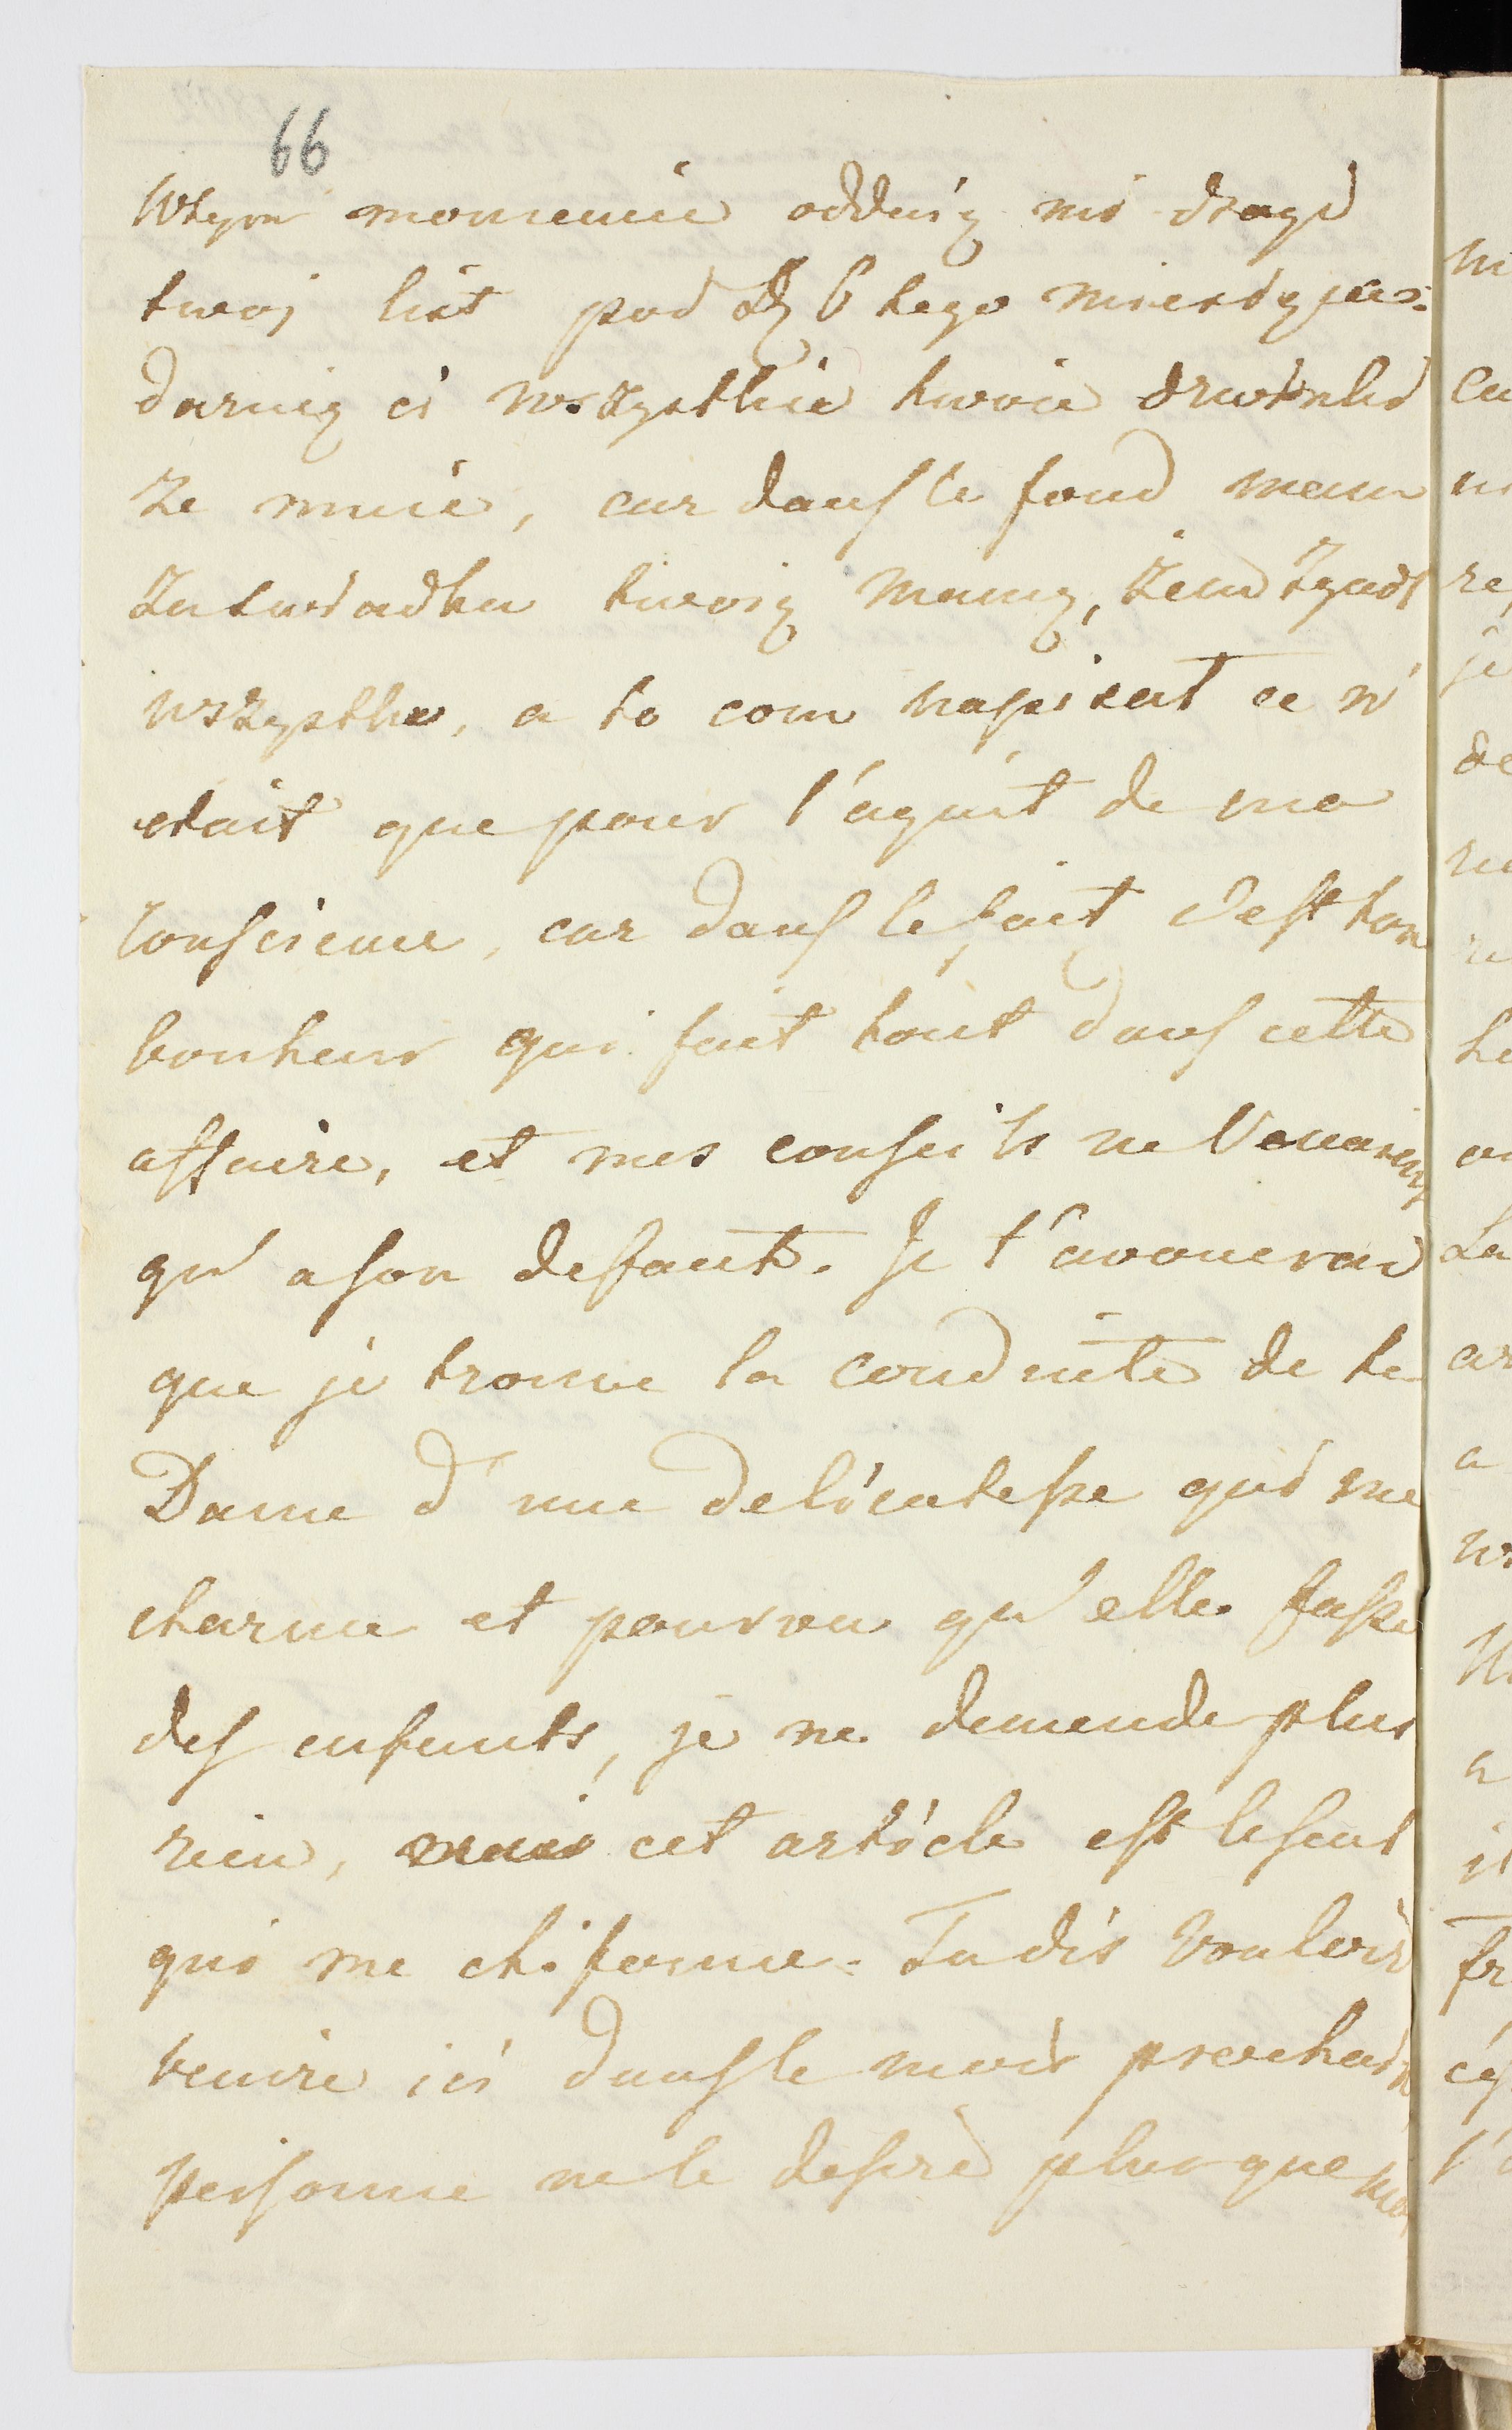 66
Wtym momencie oddaią mi drugi
twoj list pod dỹ 6 tego miesiąca:
daruię ci wszystkie twoie drwinki
ze mnie, car dans le fond mam
za swiadka twoią mamę, żem zgadł
wszystko, a to com napisał ce n'
etait que pour l'aquit de ma
Conscience, car dans le fait c'est ton
bonheur qui fait tout dans cette
affaire, et mes conseils ne Venaient
qu' a son defaut. Je t'avouerai
que je trouve la conduite de ta
Dame d'une delicatesse qui me
charme et pourvu qu'elle fasse
des enfants, je ne demende plus
rien, mais cet article est le seul
qui me chifonne. Tu dis Vouloir
venire ici dans le mois prochain
personne ne le desire plus que moi